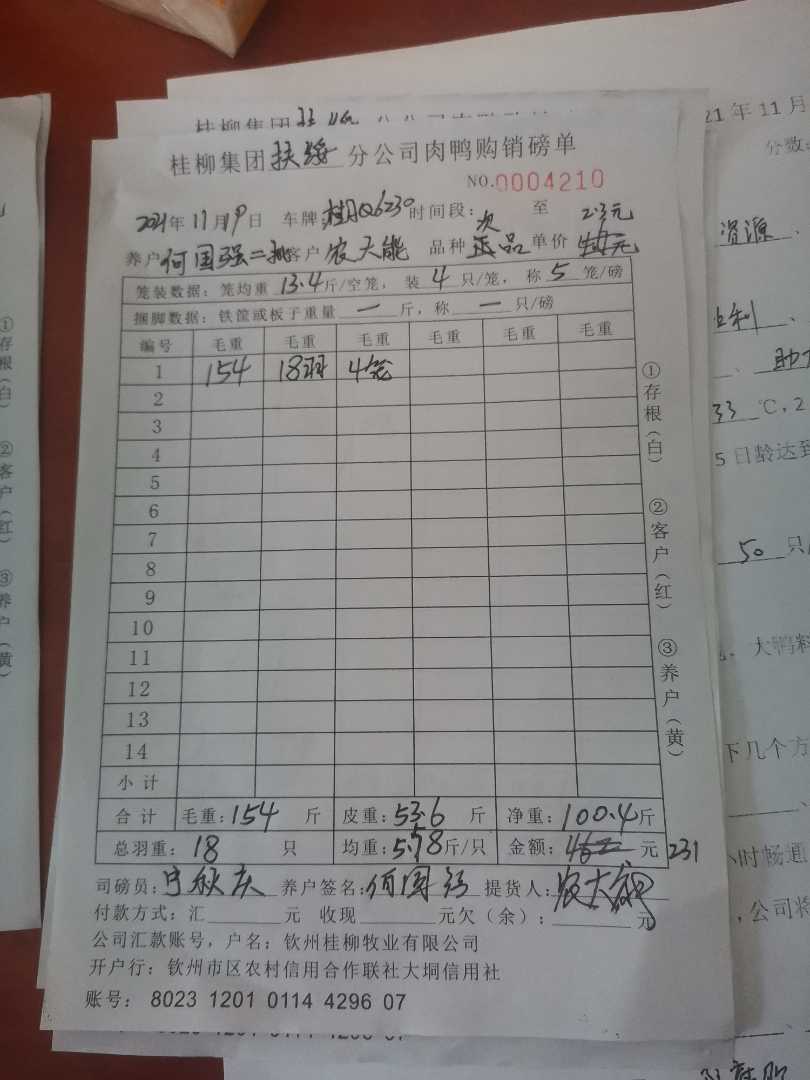 桂柳集团扶绥分公司肉鸭购销磅单
NO.0004210
2021年11月19日 车牌: 时间段: 至
次 2.3元
养户何国强二批客户农大能 品种正品单价
笼装数据: 笼均重13.4斤/空笼, 装4只/笼, 称5笼/磅
捆脚数据: 铁筐或板子重量一斤, 称一只/磅
编号 毛重 毛重 毛重 毛重 毛重 毛重
1 154 18羽 4笼
2
3
4
5
6
7
8
9
10
11
12
13
14
小计
合计 毛重:154斤 皮重:53.6斤 净重:100.4斤
总羽重:18只 均重:5.58斤/只 金额:元 231
司磅员:宁秋庆 养户签名:何国强 提货人:农大能
付款方式: 汇 元 收现 元欠(余): 元
公司汇款账号, 户名: 钦州桂柳牧业有限公司
开户行: 钦州市区农村信用合作联社大垌信用社
账号: 8023 1201 0114 4296 07
①存根(白) ②客户(红) ③养户(黄)
桂柳集团
①存根(白) ②客户(红) ③养户(黄)
21年11月
分数:
资源、
利、
助
33℃,2
5日龄达到
50只
大鸭料
下几个方
小时畅通
,公司将